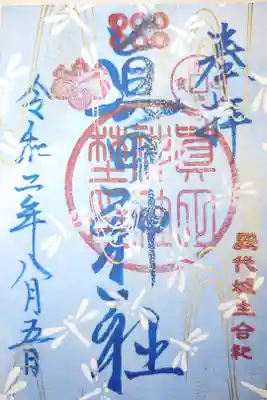 奉拝
歴代城主合祀
眞田神社
令和二年八月五日